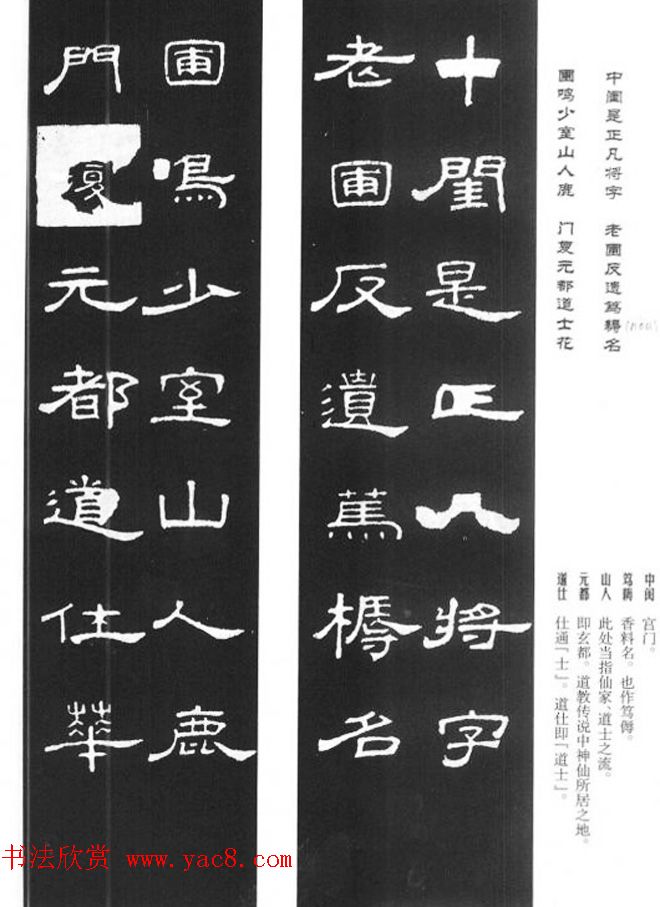 中闺是正凡将字 老圃反遗笃耨名
圃鸣少室山人鹿 门夐元都道士花
中闺 宫门。
笃耨 香料名。也作笃傉。
山人 此处当指仙家、道士之流。
元都 即玄都。道教传说中神仙所居之地。
道仕 仕通「士」。道仕即「道士」。
十閨是正八将字
老圃反遺蔦槈名
圃鳴少室山人鹿
門夐元都道仕華
书法欣赏 www.yac8.com